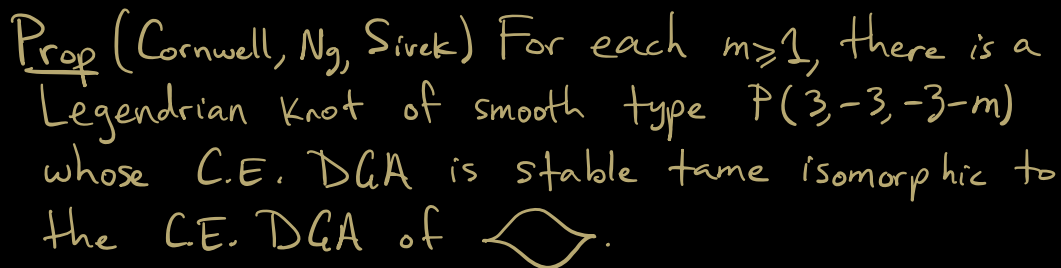 Prop (Cornwell, Ng, Sivek) For each m≥1, there is a
Legendrian knot of smooth type P(3,-3,-3-m)
whose C.E. DGA is stable tame isomorphic to
the C.E. DGA of .